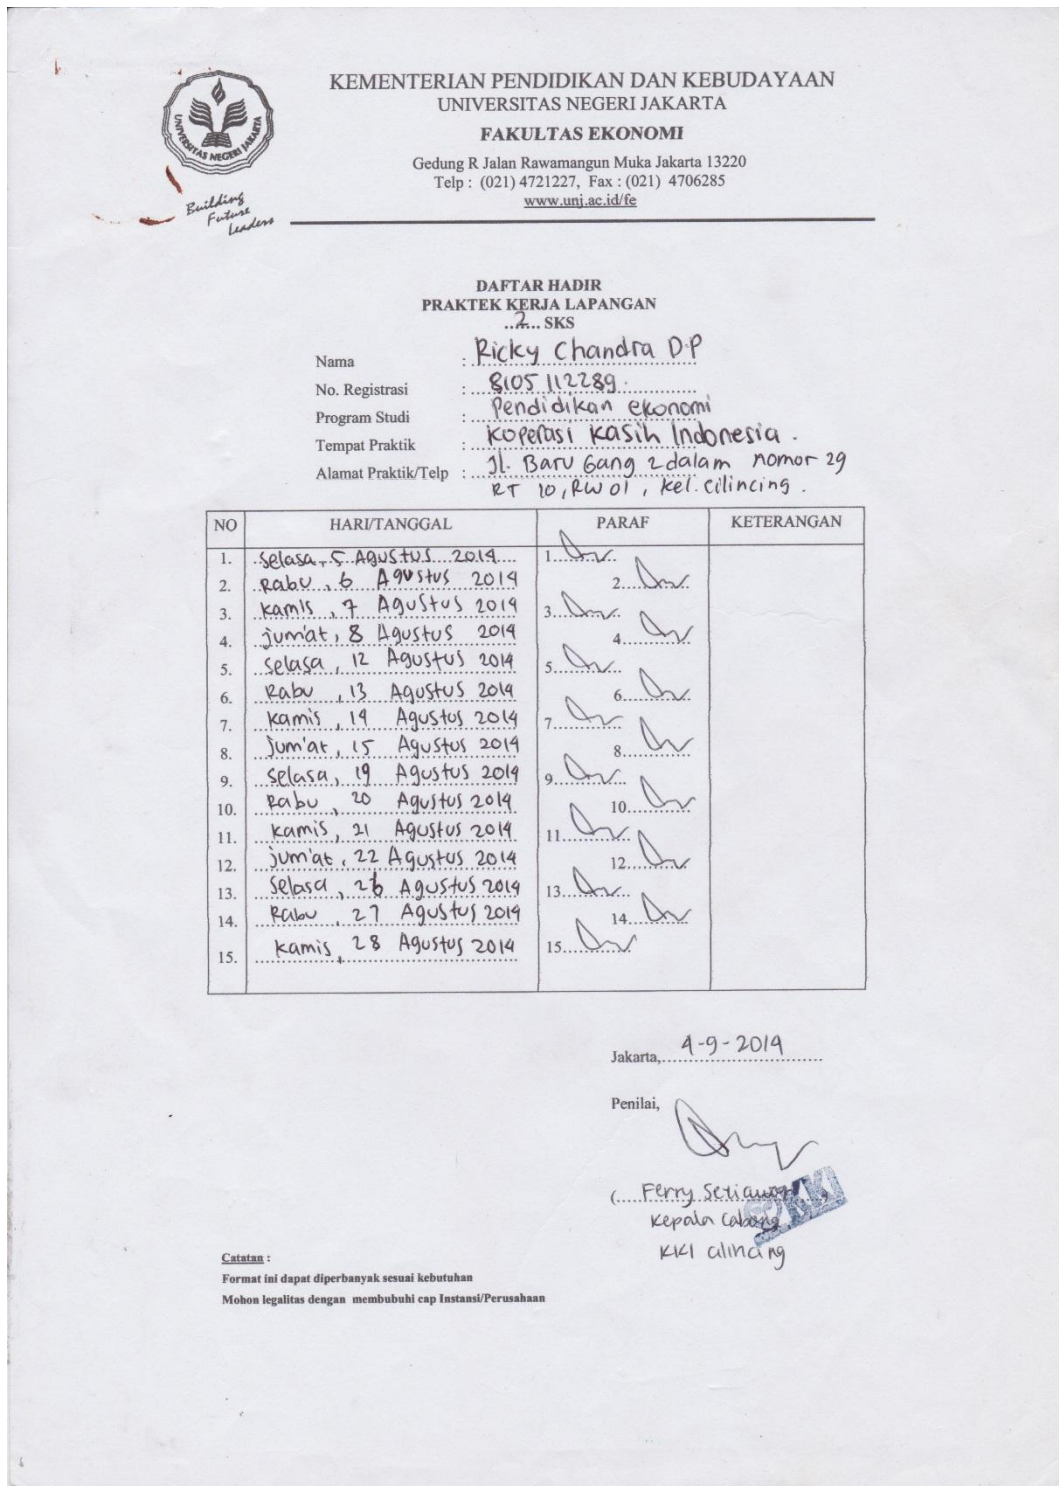 KEMENTERIAN PENDIDIKAN DAN KEBUDAYAAN
UNIVERSITAS NEGERI JAKARTA
FAKULTAS EKONOMI
Gedung R Jalan Rawamangun Muka Jakarta 13220
Telp : (021) 4721227, Fax : (021) 4706285
www.unj.ac.id/fe
UNIVERSITAS NEGERI JAKARTA
Building
Future
Leaders
DAFTAR HADIR
PRAKTEK KERJA LAPANGAN
..2... SKS
Nama : Ricky Chandra D.P
No. Registrasi : 8105112289.
Program Studi : Pendidikan ekonomi
Tempat Praktik : Koperasi Kasih Indonesia.
Alamat Praktik/Telp : Jl. Baru Gang 2 dalam nomor 29
RT 10, RW 01, kel. Cilincing.
NO HARI/TANGGAL PARAF KETERANGAN
1. Selasa, 5 Agustus 2014 1.
2. Rabu, 6 Agustus 2014 2.
3. Kamis, 7 Agustus 2014 3.
4. jum'at, 8 Agustus 2014 4.
5. Selasa, 12 Agustus 2014 5.
6. Rabu, 13 Agustus 2014 6.
7. Kamis, 14 Agustus 2014 7.
8. Jum'at, 15 Agustus 2014 8.
9. Selasa, 19 Agustus 2014 9.
10. Rabu, 20 Agustus 2014 10.
11. Kamis, 21 Agustus 2014 11.
12. jum'at, 22 Agustus 2014 12.
13. Selasa, 26 Agustus 2014 13.
14. Rabu, 27 Agustus 2014 14.
15. Kamis, 28 Agustus 2014 15.
Jakarta, 4-9-2014
Penilai,
( Ferry Setiawan
Kepala Cabang
KKI Cilincing
KKI
Catatan :
Format ini dapat diperbanyak sesuai kebutuhan
Mohon legalitas dengan membubuhi cap Instansi/Perusahaan